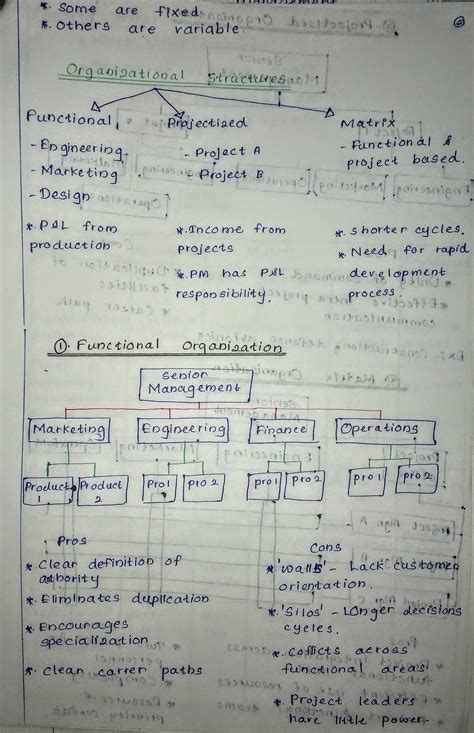 *. Some are fixed
*. Others are variable.
Organizational Structures
Functional
- Engineering
- Marketing
- Design
*. P&L from
production
Projectized
- Project A
- Project B
*. Income from
projects
*. PM has P&L
responsibility.
Matrix
- Functional &
project based.
*. Shorter cycles.
*. Need for rapid
development
process.
①. Functional Organization
Senior
Management
Marketing Engineering Finance Operations
Product
1
Product
2
Pro1 pro2 pro1 pro2 pro1 pro2
Pros
*. Clear definition of
authority
*. Eliminates duplication
*. Encourages
specialization
*. Clean carrier paths
Cons
*. 'Walls' - Lack customer
orientation.
*. 'Silos' - Longer decisions
cycles.
*. Coflicts across
functional areas
*. Project leaders
have little power.